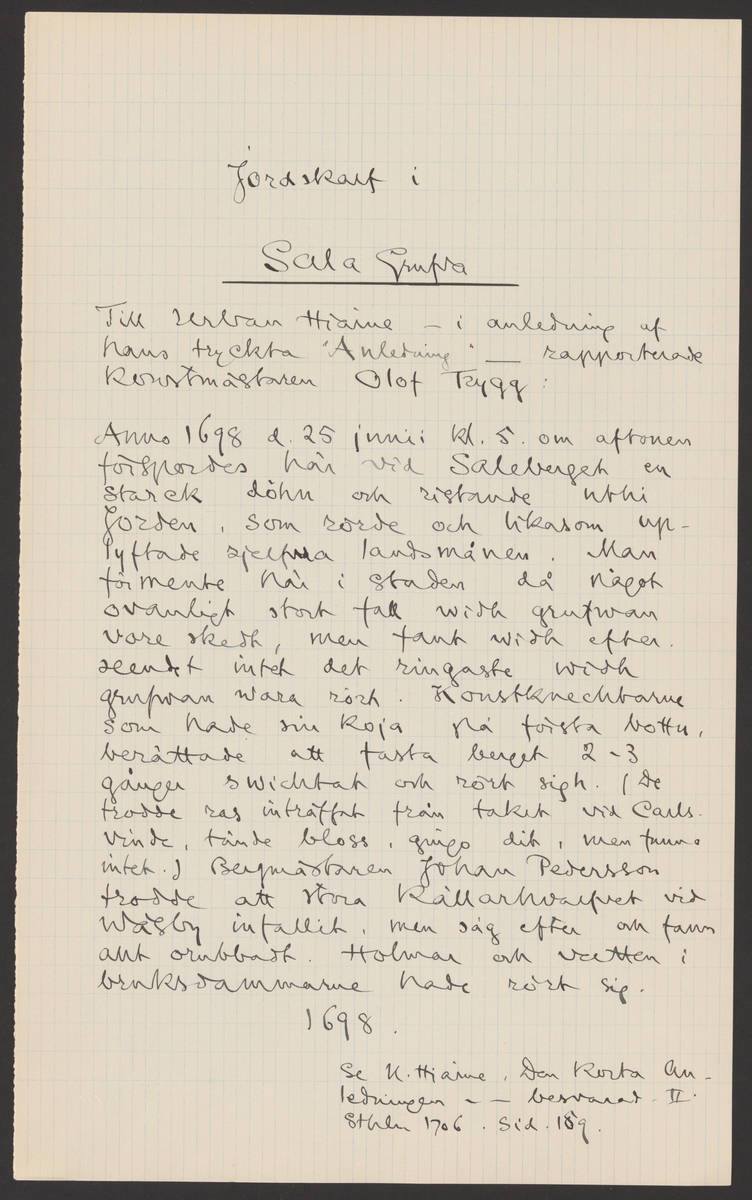 Jordskalf i
Sala Grufva
Till Urban Hiärne – i anledning af
hans tryckta "Anledning" — rapporterade
Konstmästaren Olof Trygg:
Anno 1698 d. 25 junii kl. 5. om aftonen
förspordes här vid Saleberget en
starck döhn och ristande uthi
Jorden, som rörde och likasom up-
lyftade sjelfva landsmånen. Man
förmente här i staden då något
ovanligt stort fall widh grufwan
vore skedt, men fant widh efter-
seendet intet det ringaste widh
grufwan wara rört. Konstknechtarne
som hade sin koja på första bottn,
berättade att fasta berget 2-3
gånger swichtat och rört sigh. (De
trodde ras inträffat från taket vid Carls-
vinde, tände bloss, gingo dit, men funno
intet.) Bergmästaren Johan Pedersson
trodde att stora Källarhvalfvet vid
Wäsby infallit, men såg efter och fann
allt orubbadt. Holmar och vatten i
bruksdammarne hade rört sig.
1698.
Se U. Hiärne, Den Korta An-
ledningen – – besvarad II.
Sthlm 1706. Sid. 189.